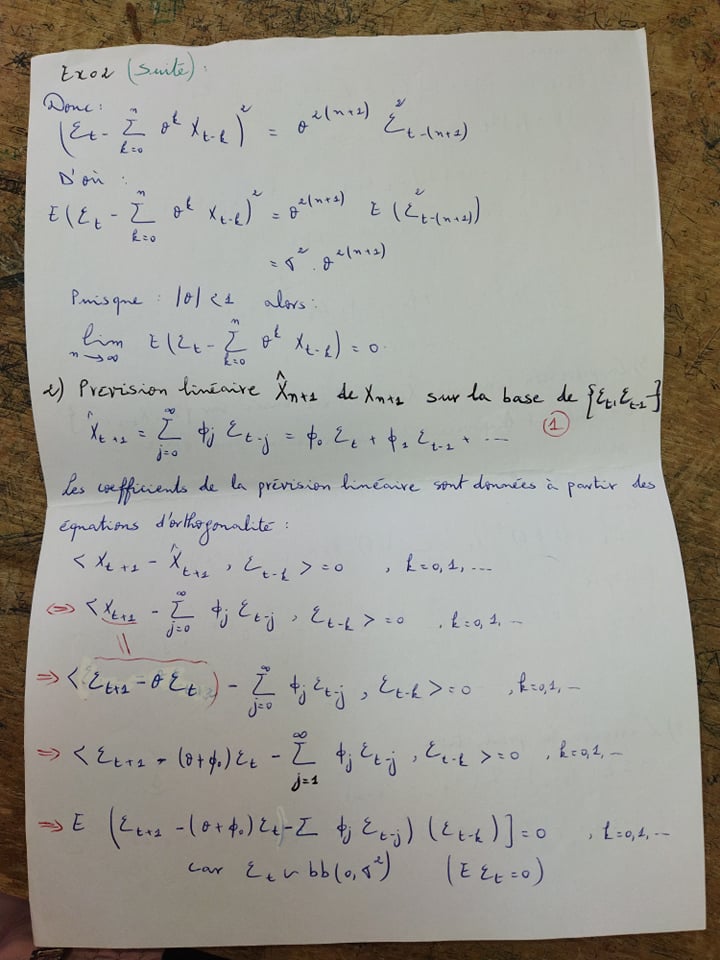 Exo2 (suite) :
Donc :
(Ɛ_t - Σ_{k=0}^{n} θ^k X_{t-k})² = θ^{2(n+1)} Ɛ²_{t-(n+1)}
D'où :
E(Ɛ_t - Σ_{k=0}^{n} θ^k X_{t-k})² = θ^{2(n+1)} E(Ɛ²_{t-(n+1)})
= σ² . θ^{2(n+1)}
Puisque : |θ| < 1 alors :
lim_{n→∞} E(Ɛ_t - Σ_{k=0}^{n} θ^k X_{t-k}) = 0.
2) Prévision linéaire X̂_{n+1} de X_{n+1} sur la base de {Ɛ_t, Ɛ_{t-1}}
X̂_{t+1} = Σ_{j=0}^{∞} ϕ_j Ɛ_{t-j} = ϕ_0 Ɛ_t + ϕ_1 Ɛ_{t-1} + ... ①
Les coefficients de la prévision linéaire sont données à partir des
équations d'orthogonalité :
< X_{t+1} - X̂_{t+1} , Ɛ_{t-k} > = 0 , k=0,1,...
⇔ < X_{t+1} - Σ_{j=0}^{∞} ϕ_j Ɛ_{t-j} , Ɛ_{t-k} > = 0 , k=0,1,..
⇒ < (Ɛ_{t+1} - θ Ɛ_t) - Σ_{j=0}^{∞} ϕ_j Ɛ_{t-j} , Ɛ_{t-k} > = 0 , k=0,1,..
⇒ < Ɛ_{t+1} - (θ+ϕ_0) Ɛ_t - Σ_{j=1}^{∞} ϕ_j Ɛ_{t-j} , Ɛ_{t-k} > = 0 , k=0,1,..
⇒ E (Ɛ_{t+1} - (θ+ϕ_0) Ɛ_t - Σ ϕ_j Ɛ_{t-j}) (Ɛ_{t-k})] = 0 , k=0,1,..
car Ɛ_t ~ bb(0,σ²) (E Ɛ_t = 0)